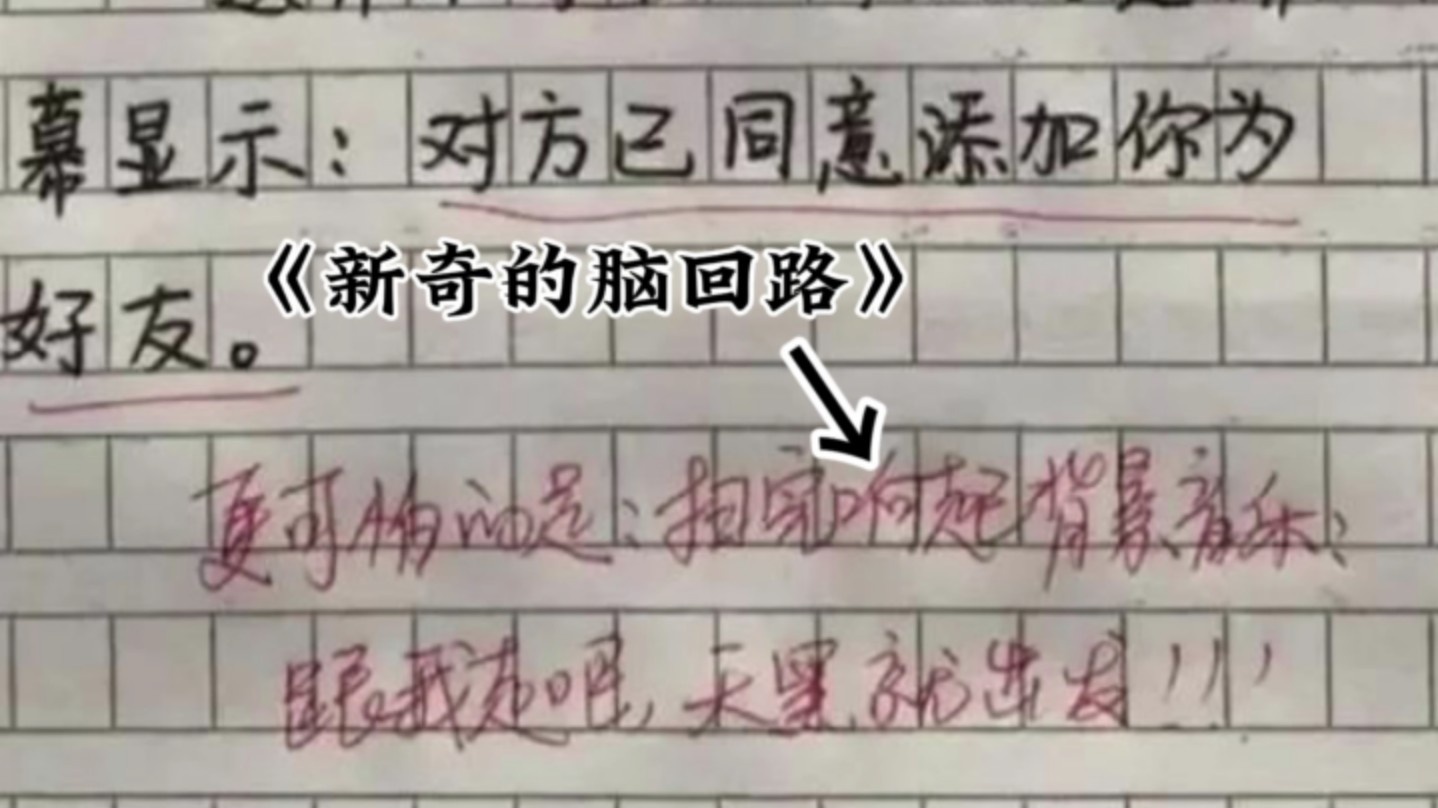 幕显示：对方已同意添加你为
《新奇的脑回路》
好友。
更可怕的是：扫完响起背景音乐：
跟我走吧，天黑就出发！！！